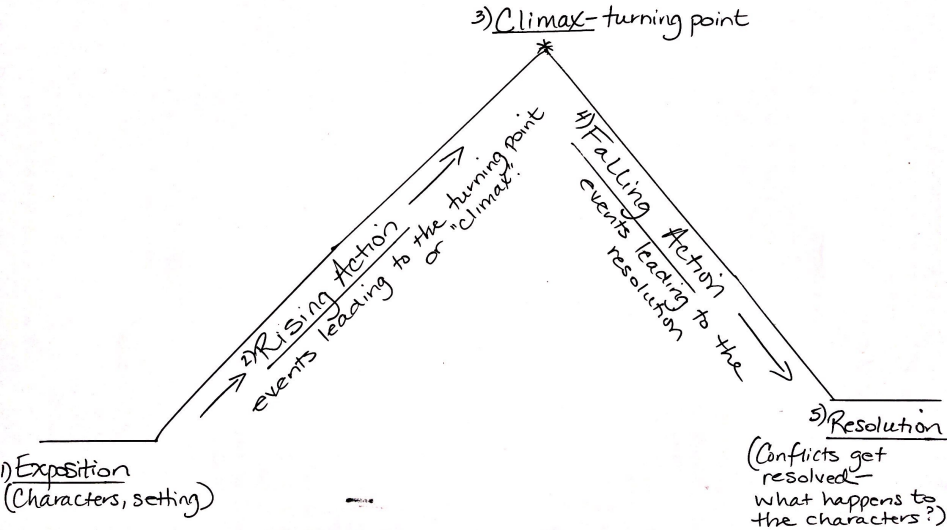 3) Climax - turning point
2) Rising Action
events leading to the turning point
or "climax".
4) Falling Action
events leading to the
resolution
1) Exposition
(Characters, setting)
5) Resolution
(Conflicts get
resolved -
what happens to
the characters?)